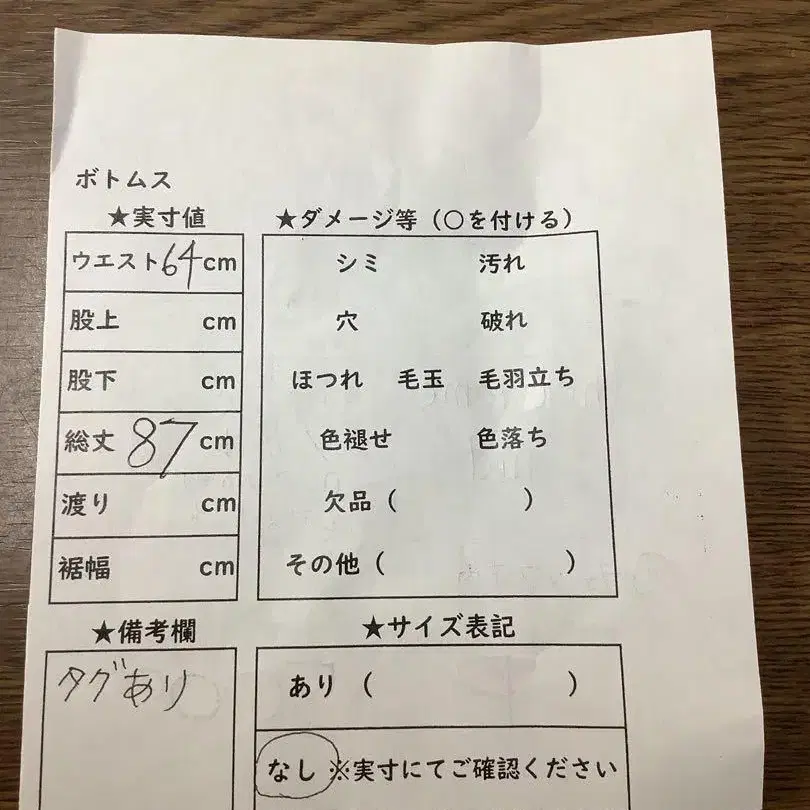 ボトムス
★実寸値
ウエスト64cm
股上 cm
股下 cm
総丈 87cm
渡り cm
裾幅 cm
★ダメージ等（○を付ける）
シミ 汚れ
穴 破れ
ほつれ 毛玉 毛羽立ち
色褪せ 色落ち
欠品（ ）
その他（ ）
★備考欄
タグあり
★サイズ表記
あり（ ）
なし ※実寸にてご確認ください